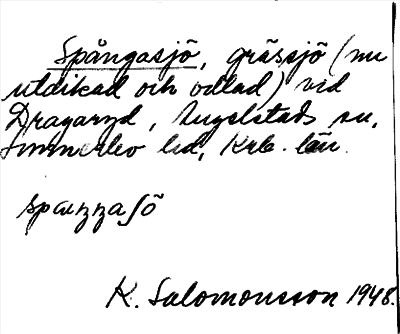 Spångasjö, grässjö (nu
utdikad och odlad) vid
Dragaryd, Angelstads sn,
Sunnerbo hd, Krb. län.
spaŋŋaʃö
K. Salomonsson 1948.